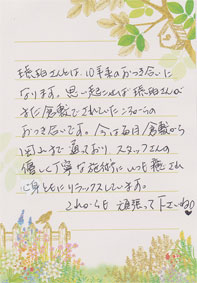 さんとは、10年来のおつき合いに
なります。思い起こせば さんが
まだ倉敷でされていたころからの
おつき合いです。今は毎月倉敷から
岡山まで通っており スタッフさんの
優しく丁寧な施術にいつも癒され
心身ともにリラックスしています。
これからも 頑張って下さいね♡